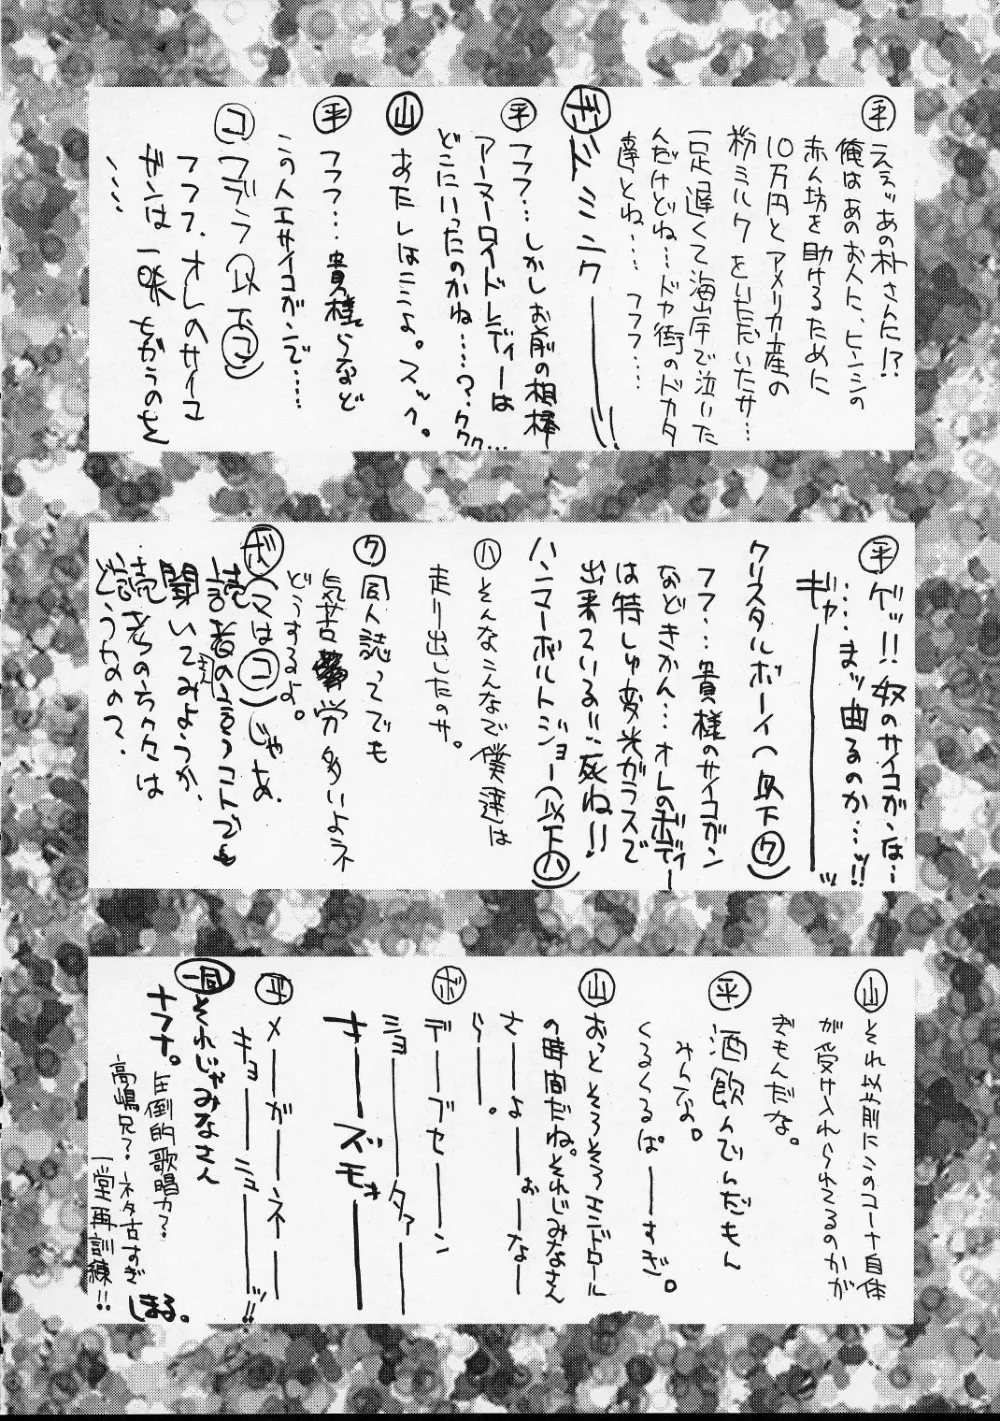 ㊤平 ええッあの朴さんに!?
俺はあのお人に、ヒンシの
赤ん坊を助けるために
10万円とアメリカ産の
粉ミルクをいただいたサ…
一足遅くて海岸で泣いた
んだけどね…ドヤ街のドカタ
達とね…フフフ…
ボ ドミニク―――!!
平 フフフ…しかしお前の相棒
アーマーロイドレディーは
どこにいったのかね……?ククク…
山 あたしはここよ。スッ。
平 フフフ…貴様らなど
この人工サイコガンで……
コブラ(以下コ)
フフフ、オレのサイコ
ガンは一味ちがうのを
、、、、
平 ゲッ!!奴のサイコガンは…
…まッ曲るのか…!!
ギャ―――ッ
クリスタルボーイ(以下ク)
フフ…貴様のサイコガン
などきかん…オレのボディー
は特しゅ変光ガラスで
出来ている!!死ね!!
ハンマーボルトジョー(以下ハ)
ハ そんなこんなで僕達は
走り出したのサ。
ク 同人誌ってでも
気苦労多いよネ
どうするよ。
ボ(マはコ)じゃあ
読者の言うコトでも
聞いてみようか、
読者のちんちんは
どうなの?
山 それ以前にこのコーナ自体
が受け入れられてるのかが
ぎもんだな。
平 酒飲んでんだもん
みんな。
くるくるぱーーすぎ。
山 おっとそろそろエンドロール
の時間だね。それじみなさん
さーよーおーなー
らー。
ボ デーブセーン
ショーーターー
さーズモォーー
平 メーガーネー
キョーーニューー!!
一同 それじゃみなさん
ナフナ。
圧倒的歌唱力?
高嶋兄?ネタ古すぎ
一堂再訓練!!
しまる。